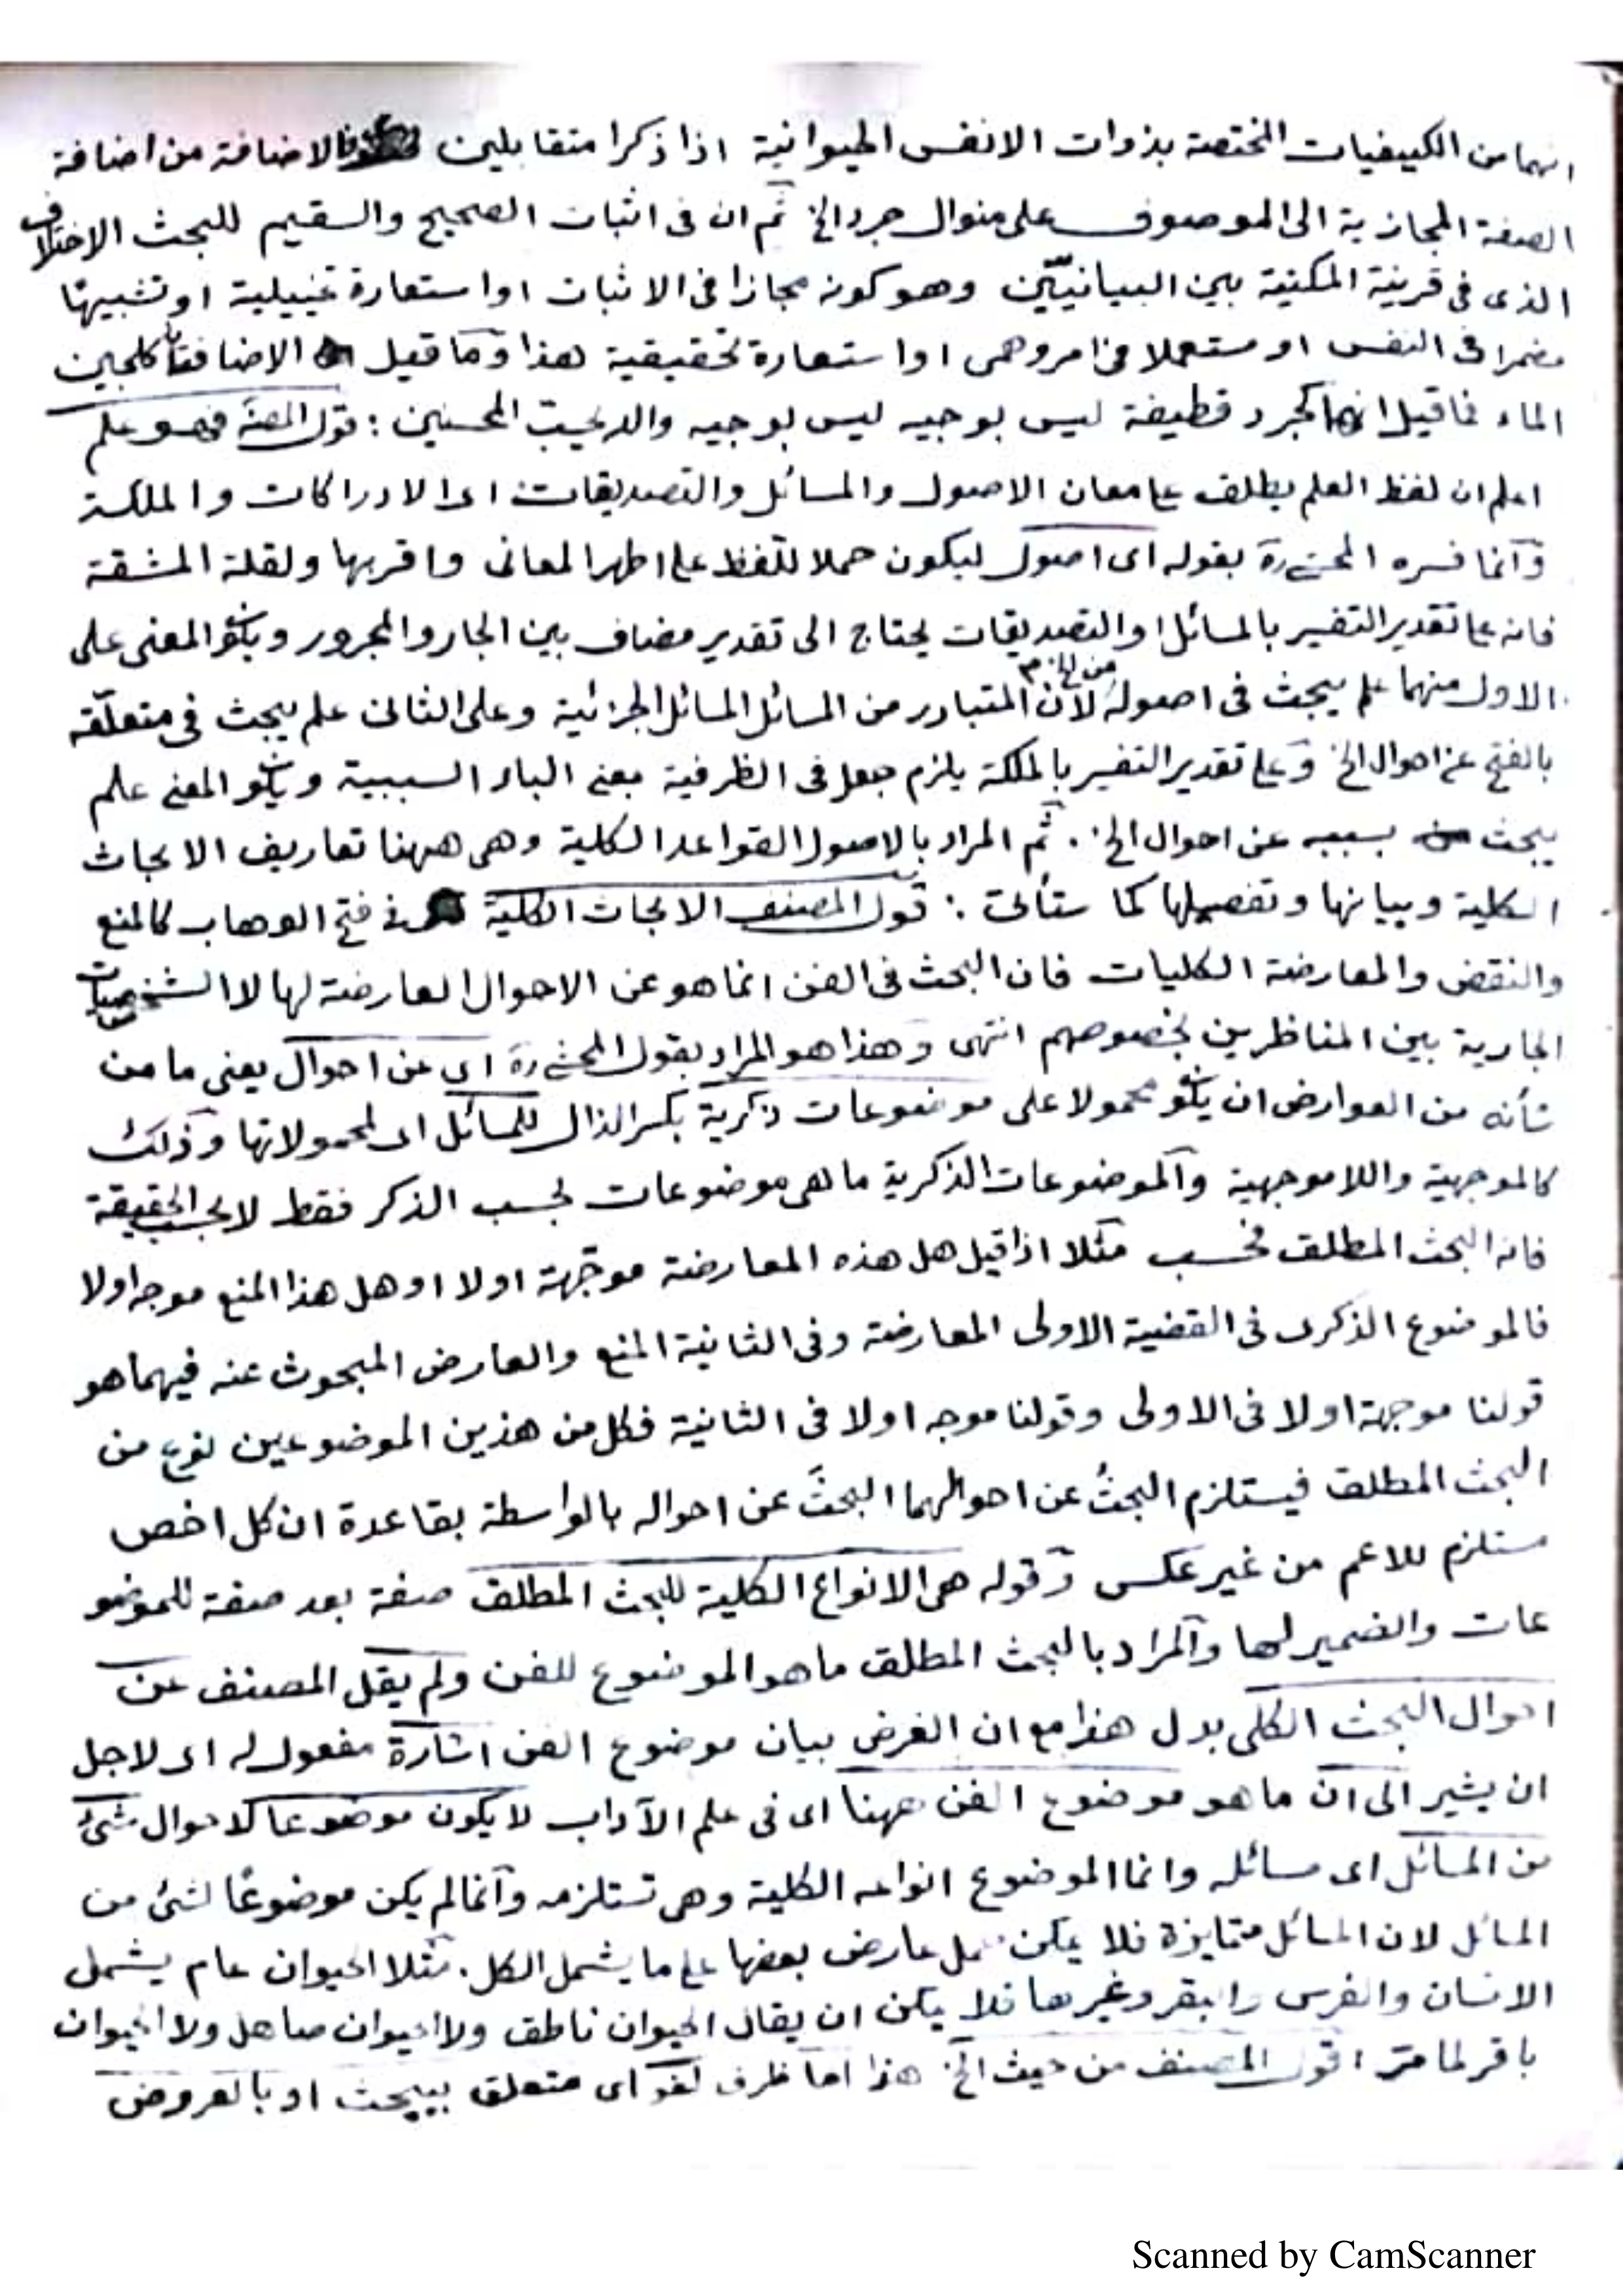 انهما من الكيفيات المختصة بذوات الانفس الحيوانية اذا ذكرا متقابلين فالاضافة من اضافة
الصفة المجازية الى الموصوف على منوال جرد الخ ثم ان فى اثبات الصحيح والسقيم للبحث الاختلاف
الذى فى قرينة المكنية بين البيانيّين وهو كونه مجازا فى الاثبات او استعارة تخييلية او تشبيها
مضمرا فى النفس او مستعملا فى امر وهمى او استعارة تحقيقية هذا وما قيل الاضافة كلجين
الماء فما قيل انها كجرد قطيفة ليس بوجيه ليس بوجيه والله يحب المحسنين : قول المصنف فهو علم
اعلم ان لفظ العلم يطلق على معان الاصول والمسائل والتصديقات اى الادراكات والملكة
وانما فسره المحشى ره بقوله اى اصول ليكون حملا للفظ على اظهر المعانى واقربها ولقلة المشقة
فانه على تقدير التفسير بالمسائل او التصديقات يحتاج الى تقدير مضاف بين الجار والمجرور ويكو المعنى على
الاول منهما علم يبحث فى اصوله لان المتبادر من المسائل المسائل الجزئية وعلى الثانى علم يبحث فى متعلّقه
بالفتح عن احوال الخ وعلى تقدير التفسير بالملكة يلزم جعل فى الظرفية بمعنى الباء السببية ويكو المعنى علم
يبحث بسببه عن احوال الخ . ثم المراد بالاصول القواعد الكلية وهى ههنا تعاريف الابحاث
الكلية وبيانها وتفصيلها كما ستأتى : قول المصنف الابحاث الكلية فى فتح الوهاب كالمنع
والنقض والمعارضة الكليات فان البحث فى الفن انما هو عن الاحوال العارضة لها لا الشخصيات
الجارية بين المناظرين بخصوصهم انتهى وهذا هو المراد بقول المحشى ره اى عن احوال يعنى ما من
شأنه من العوارض ان يكو محمولا على موضوعات ذكرية بكسر الذال للمسائل اى لمحمولاتها وذلك
كالموجهية واللاموجهية والموضوعات الذكرية ما هى موضوعات بحسب الذكر فقط لا بحسب الحقيقة
فانه البحث المطلق فحسب مثلا اذا قيل هل هذه المعارضة موجّهة اولا او هل هذا المنع موجه اولا
فالموضوع الذكرى فى القضية الاولى المعارضة وفى الثانية المنع والعارض المبحوث عنه فيهما هو
قولنا موجهة اولا فى الاولى وقولنا موجه اولا فى الثانية فكل من هذين الموضوعين نوع من
البحث المطلق فيستلزم البحثُ عن احوالهما البحثَ عن احواله بالواسطة بقاعدة ان كل اخص
مستلزم للاعم من غير عكس وقوله هى الانواع الكلية للبحث المطلق صفة بعد صفة للموضو
عات والضمير لها والمراد بالبحث المطلق ما هو الموضوع للفن ولم يقل المصنف عن
احوال البحث الكلى بدل هذا مع ان الغرض بيان موضوع الفن اشارة مفعول له اى لاجل
ان يشير الى ان ما هو موضوع الفن ههنا اى فى علم الآداب لا يكون موضوعا لاحوال شئ
من المسائل اى مسائله وانما الموضوع انواعه الكلية وهى تستلزمه وانما لم يكن موضوعًا لشئ من
المسائل لان المسائل متمايزة فلا يمكن حمل عارض بعضها على ما يشمل الكل . مثلا الحيوان عام يشمل
الانسان والفرس والبقر وغيرها فلا يمكن ان يقال الحيوان ناطق ولا الحيوان صاهل ولا الحيوان
باقر لما مرّ : قول المصنف من حيث الخ هذا اما ظرف لغو اى متعلق بيبحث او بالعروض
Scanned by CamScanner